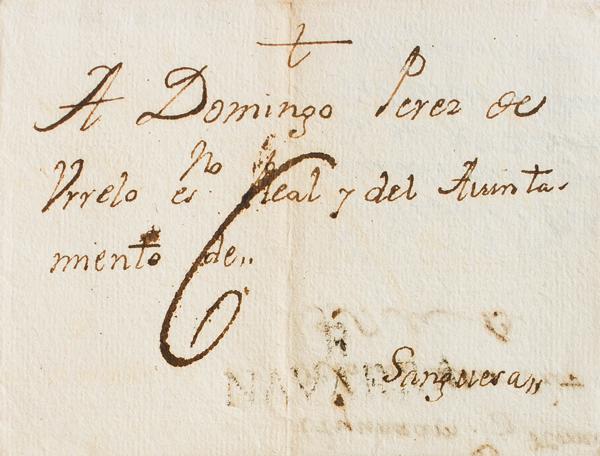 A Domingo Perez de
Vrrelo es.no Real y del Aiunta-
miento de,,
6
Sanguesa,,